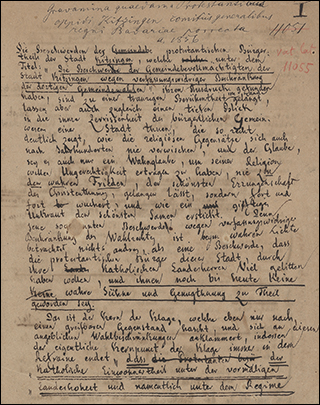 Gravamina quaedam Protestantium
oppidi Kitzingen comitiis generalibus
regni Bavariae
a. 1831.
I
11051
11055
Die Beschwerden der protestantischen Bürger
theils der Stadt Kitzingen, welche unter dem
Titel: Die Beschwerde der Gemeindebevollmächtigten der
Stadt Kitzingen wegen verfassungswidriger Beschränkung
der dortigen Gemeindewahlen, ihren Ausdruck gefunden
haben, sind zu einer traurigen Berühmtheit gelangt
lassen aber auch zugleich einen tiefen Blick
in die innere Zerrissenheit des bürgerlichen Gemein
wesens einer Stadt thuen, die so recht
deutlich zeigt, wie die religiösen Gegensätze sich auch
nach Jahrhunderten nie verwischen und der Glaube,
sey es auch nur ein Wahnglaube, um seiner Religion
willen Ungerechtigkeit ertragen zu haben, nie zu
dem wahren Frieden, der schönsten Errungenschaft
des Christenthums, gelangen lässt, sondern fort und
fort wuchert, und wie ein giftiges
Unkraut den schönsten Samen erstickt. Denn
jene sog. Beschwerde wegen verfassungswidriger
Beschränkung der Wahlrechte ist beim wahren Lichte
betrachtet nichts anders, als eine Beschwerde, dass
die protestantischen Bürger dieser Stadt, durch
ihre katholischen Landesherren Viel gelitten
haben wollen, und ihnen noch bis heute keine
wahre Sühne und Genugthuung zu Theil
geworden sey.
Das ist der Kern der Klage, welche eben nur nach
einem greifbaren Gegenstand hascht und sich an diesen
angeblichen Wahlbeschränkungen anklammert, indessen
der eigentliche Kernpunkt der Klage immer in dem
Refraine endet, dass der
katholische Einwohnertheil unter der vormaligen
Landeshoheit und namentlich unter dem Regime